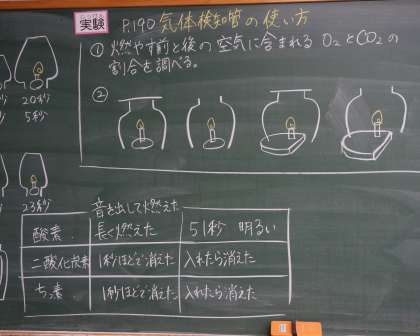 実験 P.190 気体検知管の使い方
① 燃やす前と後の空気に含まれる O₂とCO₂の
割合を調べる。
②
20秒
5秒
23秒
音を出して燃えた
酸素 長く燃えた 51秒 明るい
二酸化炭素 1秒ほどで消えた 入れたら消えた
ちっ素 1秒ほどで消えた 入れたら消えた